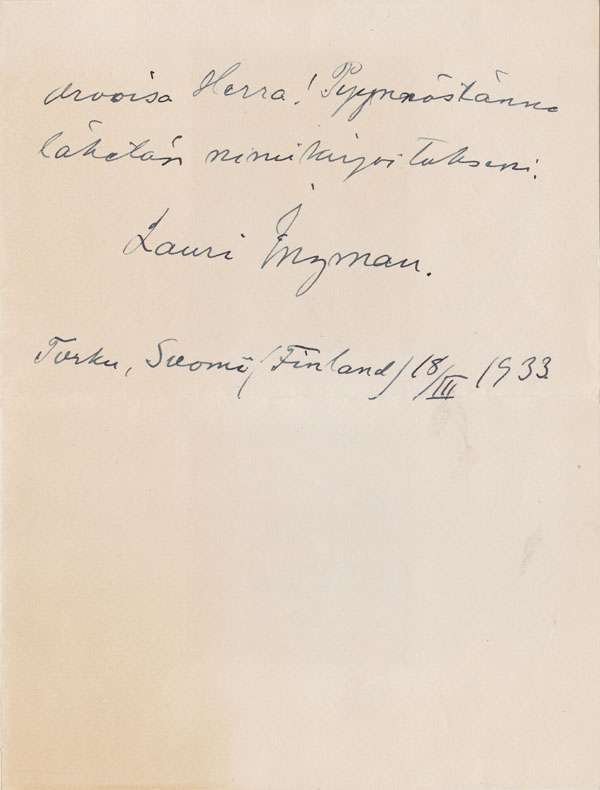 Arvoisa Herra! Pyynnöstänne
lähetän nimikirjoitukseni.
Lauri Ingman.
Turku, Suomi (Finland) 18/III 1933